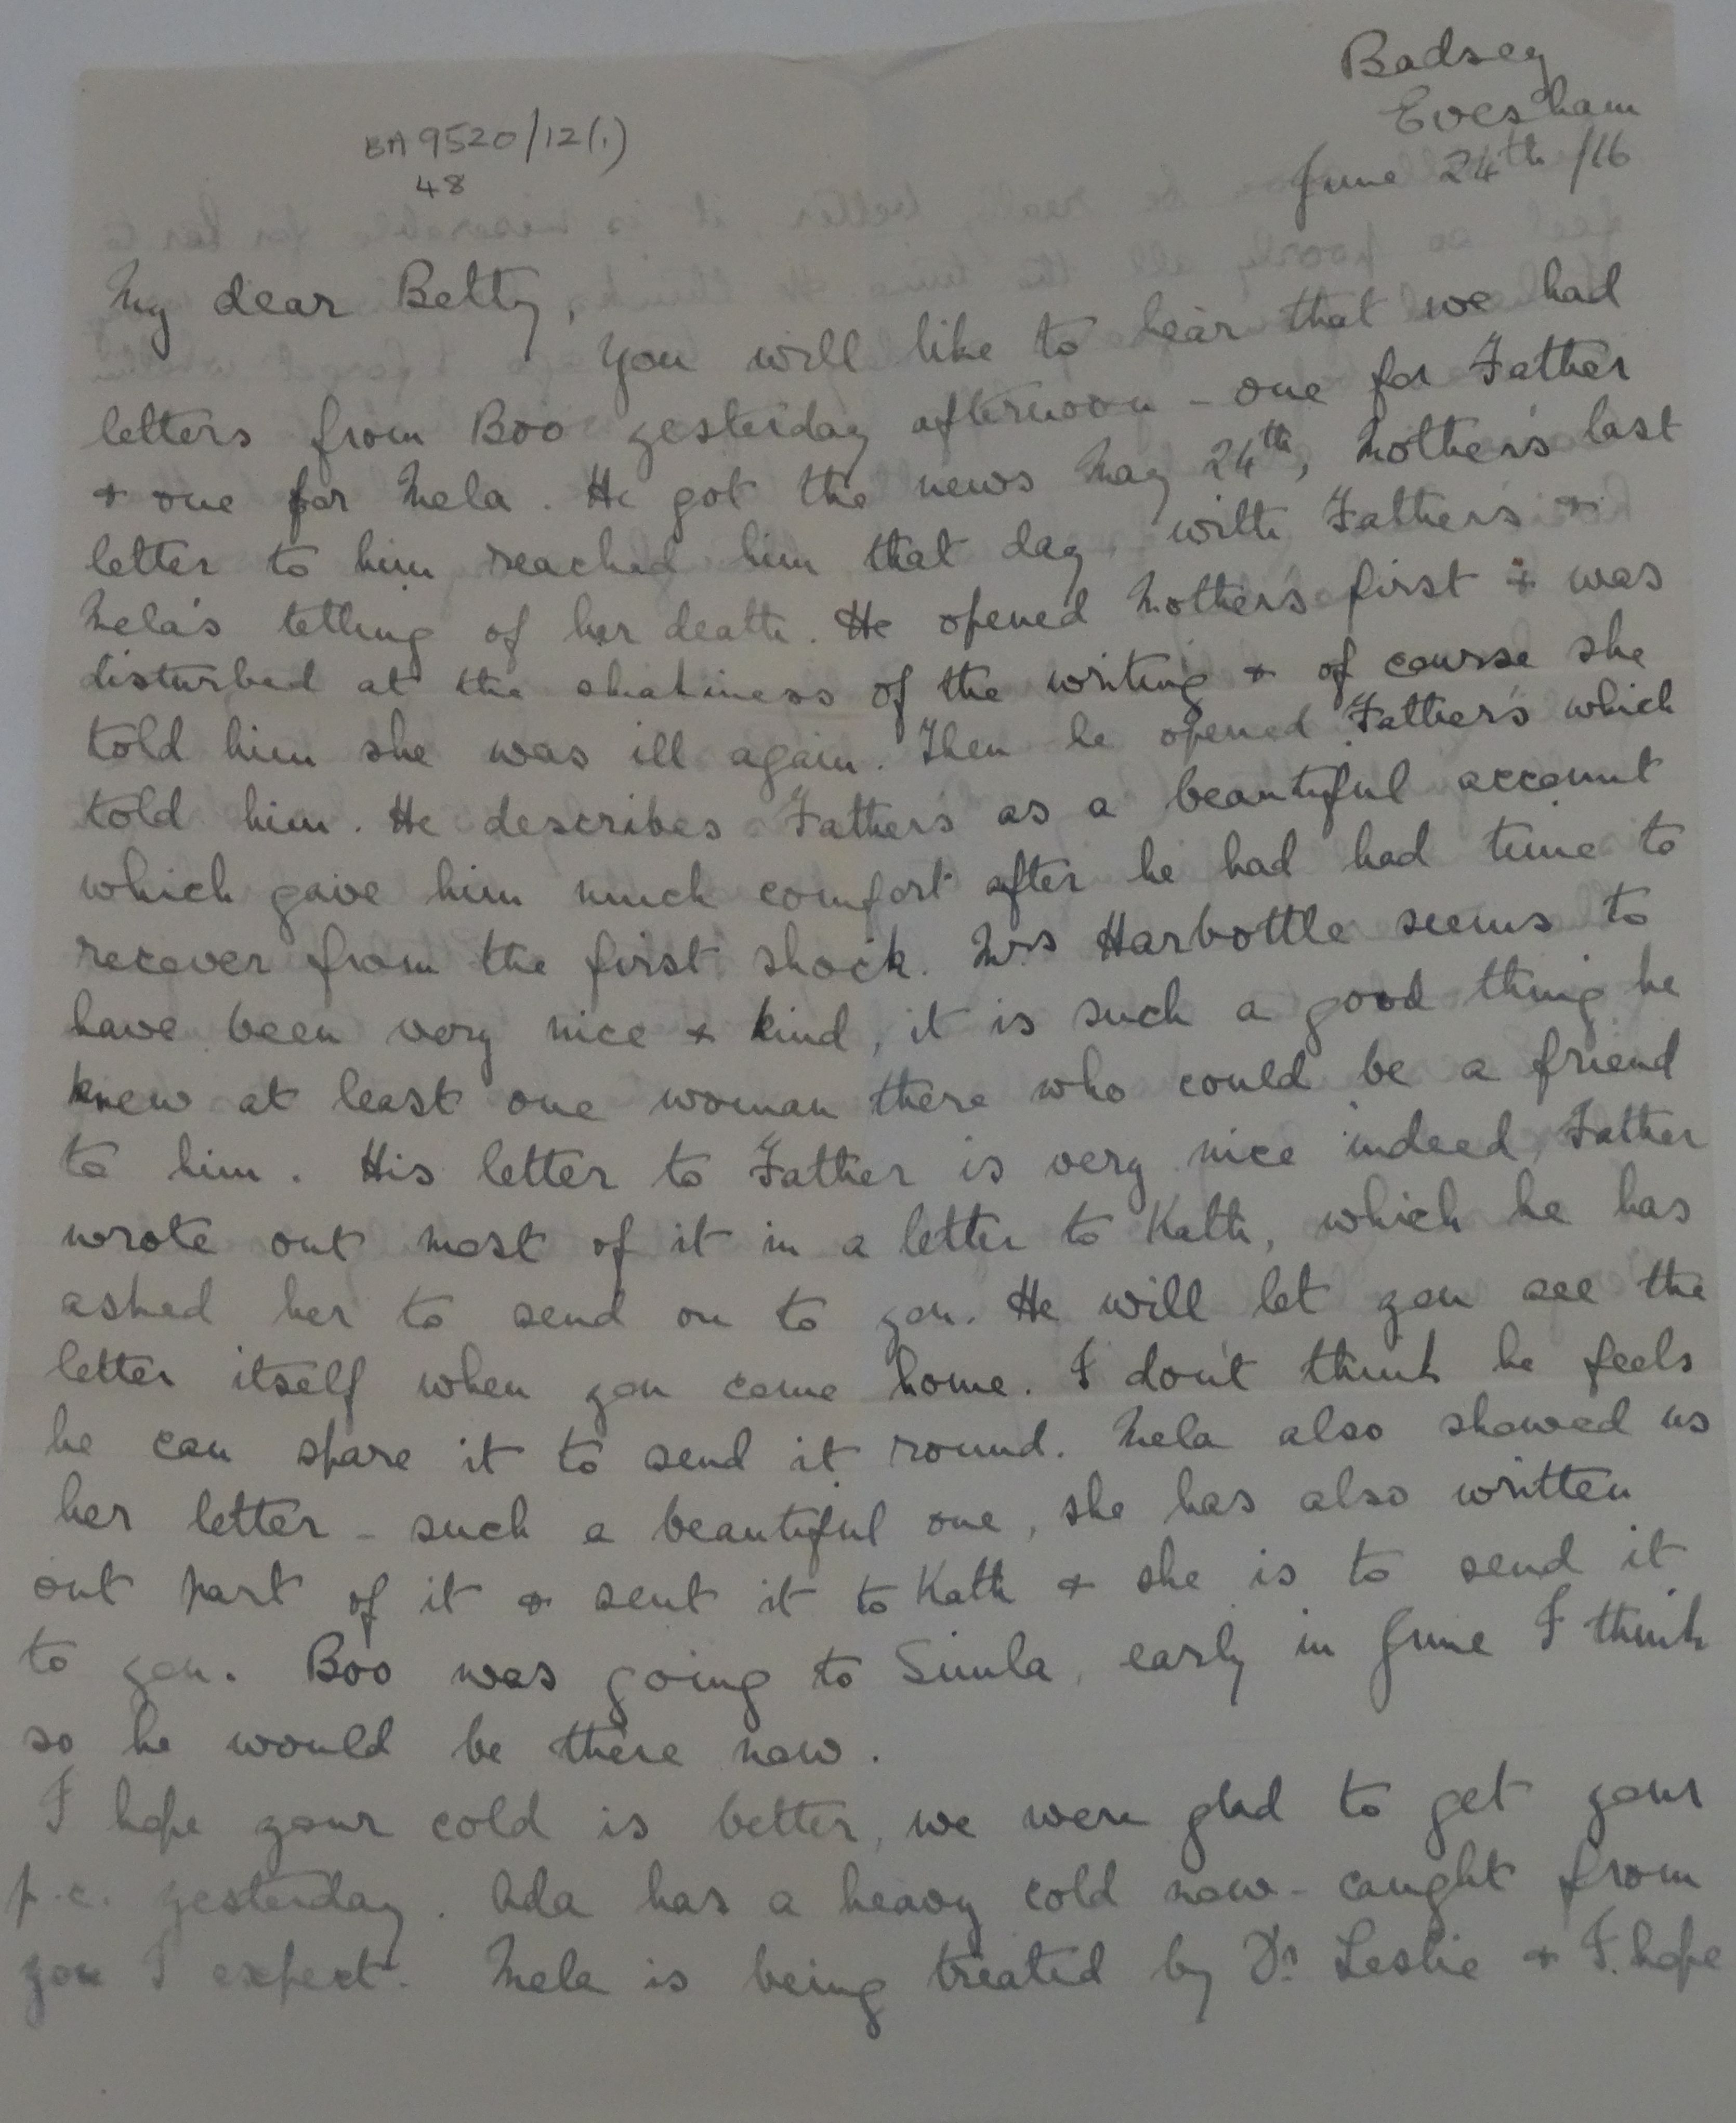 Badsey
Evesham
June 24th /16
BA 9520/12(1)
48
My dear Betty,
You will like to hear that we had
letters from Boo yesterday afternoon - one for Father
& one for Mela. He got the news May 24th, Mother's last
letter to him reached him that day, with Father's &
Mela's telling of her death. He opened Mother's first & was
disturbed at the shakiness of the writing & of course she
told him she was ill again. Then he opened Father's which
told him. He describes Father's as a beautiful account
which gave him much comfort after he had had time to
recover from the first shock. Mrs Harbottle seems to
have been very nice & kind, it is such a good thing he
knew at least one woman there who could be a friend
to him. His letter to Father is very nice indeed, Father
wrote out most of it in a letter to Kath, which he has
asked her to send on to you. He will let you see the
letter itself when you come home. I don't think he feels
he can spare it to send it round. Mela also showed us
her letter - such a beautiful one, she has also written
out part of it & sent it to Kath & she is to send it
to you. Boo was going to Simla, early in June I think
so he would be there now.
I hope your cold is better, we were glad to get your
p.c. yesterday. Ada has a heavy cold now - caught from
you I expect. Mela is being treated by Dr Leslie & I hope